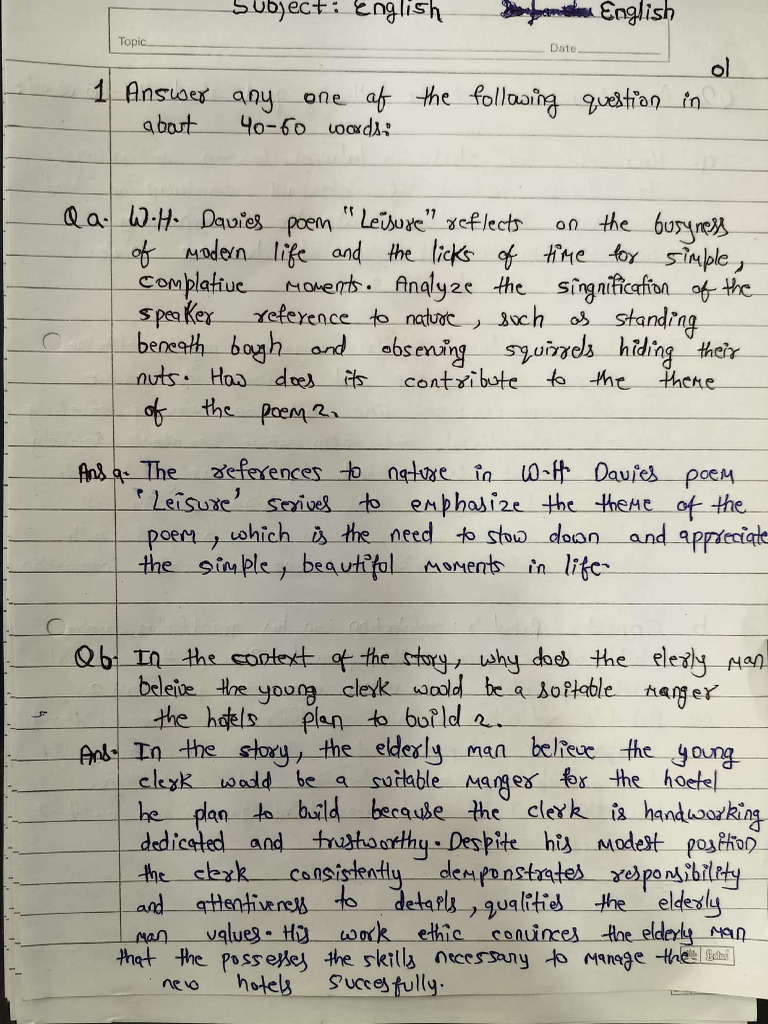 Subject: English English
Topic Date
01
1 Answer any one of the following question in
about 40-60 words:
Q a. W.H. Davies poem "Leisure" reflects on the busyness
of modern life and the licks of time for simple,
complative moments. Analyze the singnification of the
speaker reference to nature, such as standing
beneath bough and observing squirrels hiding their
nuts. How does its contribute to the theme
of the poem?
Ans a. The references to nature in W.H Davies poem
'Leisure' serives to emphasize the theme of the
poem, which is the need to slow down and appreciate
the simple, beautiful moments in life-
Q b. In the context of the story, why does the elerly man
beleive the young clerk would be a suitable manger
the hotels plan to build ?.
Ans. In the story, the elderly man believe the young
clerk would be a suitable manger for the hoetel
he plan to build because the clerk is handworking
dedicated and trustworthy. Despite his modest position
the clerk consistently demponstrates responsibility
and attentiveness to details, qualities the elderly
man values. His work ethic convinces the elderly man
that the possesses the skills necessary to manage the
new hotels succesfully.